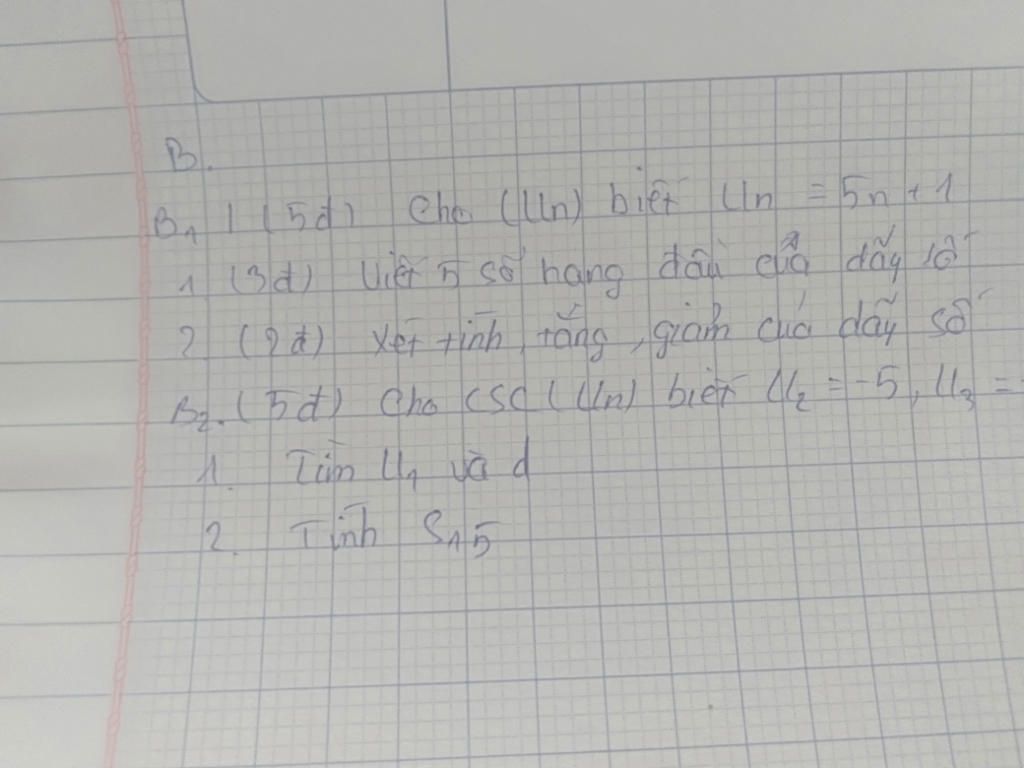 B.
B1 | (5đ) Cho (Un) biết Un = 5n + 1
1 (3đ) Viết 5 số hạng đầu của dãy số
2. (2đ) Xét tính tăng, giảm của dãy số
B2. (5đ) Cho CSC (Un) biết U2 = -5, U3 =
1. Tìm U1 và d
2. Tính S15